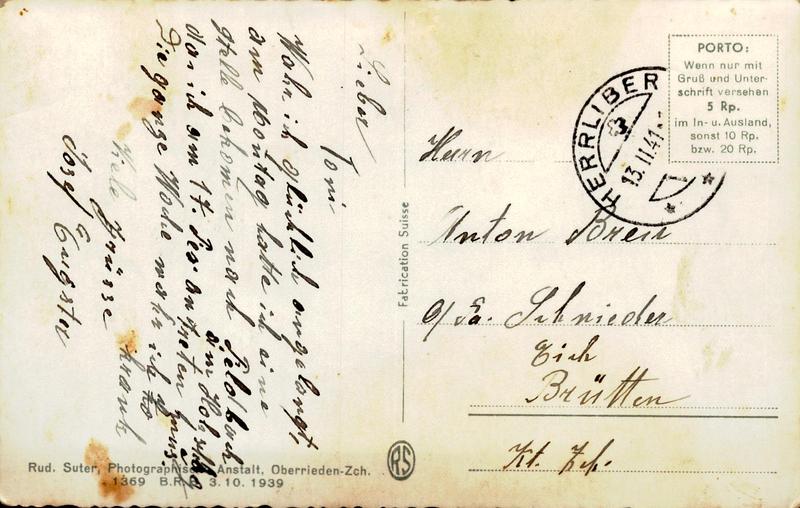 Lieber
Toni
Wohn ich glücklich angelangt,
am Montag hatte ich eine
Stelle bekomen nach Feldbach
am
dan ich am 17. Des. antreten muss
Die ganze Woche wahr ich
krank
Viele Grüsse
Josef Eugster
Fabrication Suisse
HERRLIBER
13.II.41
PORTO:
Wenn nur mit
Gruß und Unter-
schrift versehen
5 Rp.
im In- u. Ausland,
sonst 10 Rp.
bzw. 20 Rp.
Herrn
Anton
c/o Fa. Schnieder
Eich
Brütten
Kt. Zch.
Rud. Suter, Photographische Anstalt, Oberrieden-Zch.
1369 B.R. 3.10.1939
RS